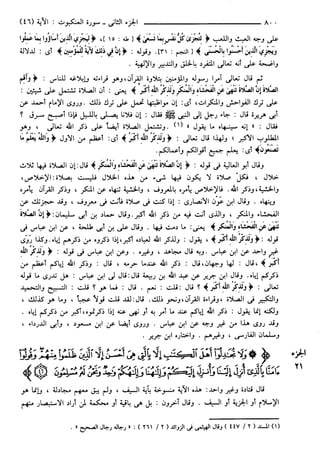 ٨٠٠ الجزء الثاني - سورة العنكبوت : الآية (٤٦)
على وجه العبث واللعب ﴿لِتُجْزَىٰ كُلُّ نَفْسٍ بِمَا تَسْعَىٰ﴾ [ طه : ١٥ ]، ﴿لِيَجْزِيَ الَّذِينَ أَسَاءُوا بِمَا عَمِلُوا
وَيَجْزِيَ الَّذِينَ أَحْسَنُوا بِالْحُسْنَى﴾ [ النجم : ٣١ ]. وقوله : ﴿إِنَّ فِي ذَٰلِكَ لَآيَةً لِلْمُؤْمِنِينَ﴾ أى : لدلالة
واضحة على أنه تعالى المتفرد بالخلق والتدبير والإلهية .
ثم قال تعالى آمراً رسوله والمؤمنين بتلاوة القرآن، وهو قراءته وإبلاغه للناس : ﴿وَأَقِمِ
الصَّلَاةَ إِنَّ الصَّلَاةَ تَنْهَىٰ عَنِ الْفَحْشَاءِ وَالْمُنْكَرِ وَلَذِكْرُ اللَّهِ أَكْبَرُ﴾ يعنى : أن الصلاة تشتمل على شيئين :
على ترك الفواحش والمنكرات، أى: إن مواظبتها تحمل على ترك ذلك. وروى الإمام أحمد عن
أبى هريرة قال : جاء رجل إلى النبى ﷺ فقال : إن فلانا يصلى بالليل فإذا أصبح سرق ؟
فقال : « إنه سينهاه ما يقول » (١) وتشتمل الصلاة أيضاً على ذكر الله تعالى ، وهو
المطلوب الأكبر ؛ ولهذا قال تعالى : ﴿وَلَذِكْرُ اللَّهِ أَكْبَرُ﴾ أى: أعظم من الأول ﴿وَاللَّهُ يَعْلَمُ مَا
تَصْنَعُونَ﴾ أى: يعلم جميع أقوالكم وأعمالكم.
وقال أبو العالية فى قوله : ﴿إِنَّ الصَّلَاةَ تَنْهَىٰ عَنِ الْفَحْشَاءِ وَالْمُنْكَرِ﴾ قال: إن الصلاة فيها ثلاث
خلال ، فكلّ صلاة لا يكون فيها شىء من هذه الخلال فليست بصلاة :الإخلاص،
والخشية،وذكر الله. فالإخلاص يأمره بالمعروف، والخشية تنهاه عن المنكر ، وذكر القرآن يأمره
وينهاه . وقال ابن عون الأنصارى : إذا كنت فى صلاة فأنت فى معروف ، وقد حجزتك عن
الفحشاء والمنكر ، والذى أنت فيه من ذكر الله أكبر. وقال حماد بن أبى سليمان: ﴿إِنَّ الصَّلَاةَ
تَنْهَىٰ عَنِ الْفَحْشَاءِ وَالْمُنْكَرِ﴾ يعنى: ما دمت فيها . وقال على بن أبى طلحة ، عن ابن عباس فى
قوله : ﴿وَلَذِكْرُ اللَّهِ أَكْبَرُ﴾ ، يقول : ولذكر الله لعباده أكبر،إذا ذكروه من ذكرهم إياه. وكذا روى
غير واحد عن ابن عباس. وبه قال مجاهد ، وغيره . وعن ابن عباس فى قوله : ﴿وَلَذِكْرُ اللَّهِ
أَكْبَرُ﴾ قال: لها وجهان، قال : ذكر الله عندما حرمه ، قال : وذكر الله إياكم أعظم من
ذكركم إياه . وقال ابن جرير عن عبد الله بن ربيعة قال:قال لى ابن عباس : هل تدرى ما قوله
تعالى : ﴿وَلَذِكْرُ اللَّهِ أَكْبَرُ﴾ ؟ قال : قلت : نعم . قال : فما هو ؟ قلت : التسبيح والتحميد
والتكبير فى الصلاة ، وقراءة القرآن،ونحو ذلك. قال: لقد قلت قولاً عجباً ، وما هو كذلك ،
ولكنه إنما يقول : ذكر الله إياكم عند ما أمر به أو نهى عنه إذا ذكرتموه،أكبر من ذكركم إياه .
وقد روى هذا من غير وجه عن ابن عباس . وروى أيضا عن ابن مسعود ، وأبى الدرداء ،
وسلمان الفارسى ، وغيرهم . واختاره ابن جرير .
الجزء ٢١
﴿وَلَا تُجَادِلُوا أَهْلَ الْكِتَابِ إِلَّا بِالَّتِي هِيَ أَحْسَنُ إِلَّا الَّذِينَ ظَلَمُوا مِنْهُمْ وَقُولُوا
آمَنَّا بِالَّذِي أُنْزِلَ إِلَيْنَا وَأُنْزِلَ إِلَيْكُمْ وَإِلَٰهُنَا وَإِلَٰهُكُمْ وَاحِدٌ وَنَحْنُ لَهُ مُسْلِمُونَ﴾
قال قتادة وغير واحد: هذه الآية منسوخة بآية السيف ، ولم يبق معهم مجادلة ، وإنما هو
الإسلام أو الجزية أو السيف . وقال آخرون : بل هى باقية أو محكمة لمن أراد الاستبصار منهم
(١) المسند ( ٢ / ٤٤٧ ) وقال الهيثمى فى الزوائد ( ٢ / ٢٦١ ) : « رجاله رجال الصحيح » .